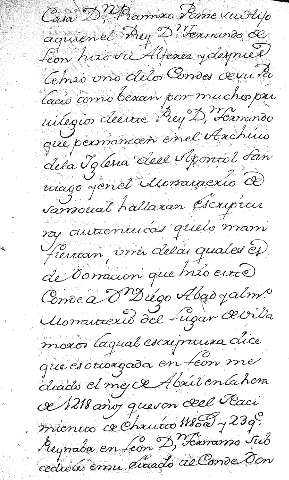 Casa Dⁿ Ramiro Ponze su Hijo
a quien el Rey Dⁿ Fernando de
Leon hizo su Alferez y despues
le hizo uno de los Condes de su Pa
lacio como veran por muchos pri
vilegios de este Rey Dⁿ Fernando
que permanecen en el Archivo
de la Iglesia de el Apostol San
tiago y en el Monasterio de
Sandoual hallaran Escriptu
ras autenticas que lo mani
fiestan, una de las quales es
de Donacion que hizo este
Conde a Dⁿ Diego Abad y al
Monasterio del Lugar de Villa
moros la qual escriptura dice
que es otorgada en Leon me
diado el mes de Abril en la hera
de 1218 años que son de el Naci
miento de Christo 1180 y
Reynaba en Leon Dⁿ Fernando Sub
cedio le en su estado al Conde Don